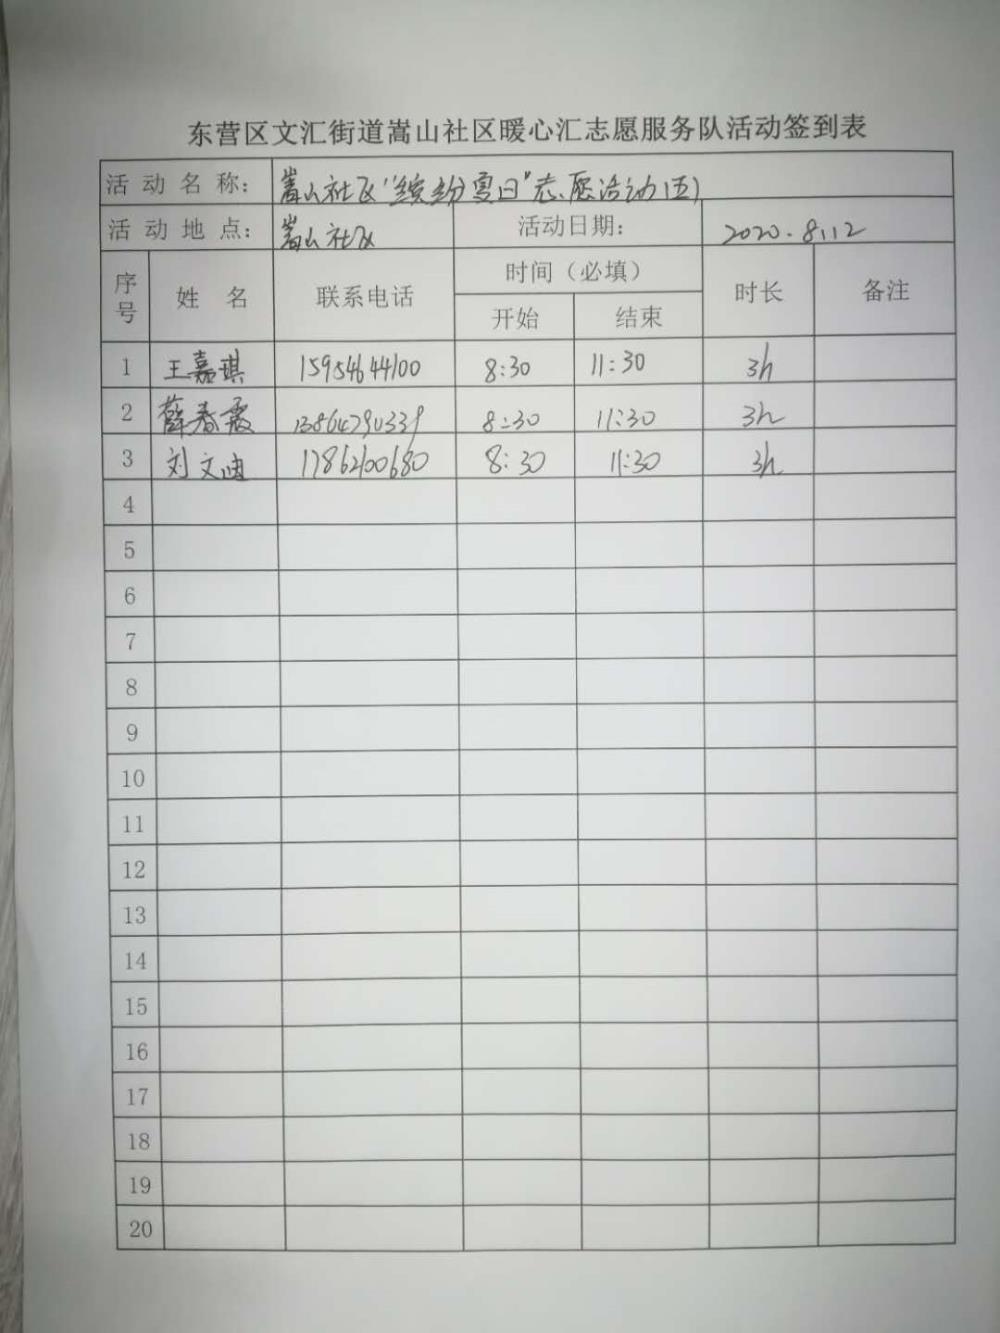 东营区文汇街道嵩山社区暖心汇志愿服务队活动签到表
活动名称： 嵩山社区“缤纷夏日”志愿活动(五)
活动地点： 嵩山社区 活动日期： 2020.8.12
序号 姓名 联系电话 时间（必填） 时长 备注
开始 结束
1 王嘉琪 15954644100 8:30 11:30 3h
2 薛春霞 13864790339 8:30 11:30 3h
3 刘文迪 17862100680 8:30 11:30 3h
4
5
6
7
8
9
10
11
12
13
14
15
16
17
18
19
20